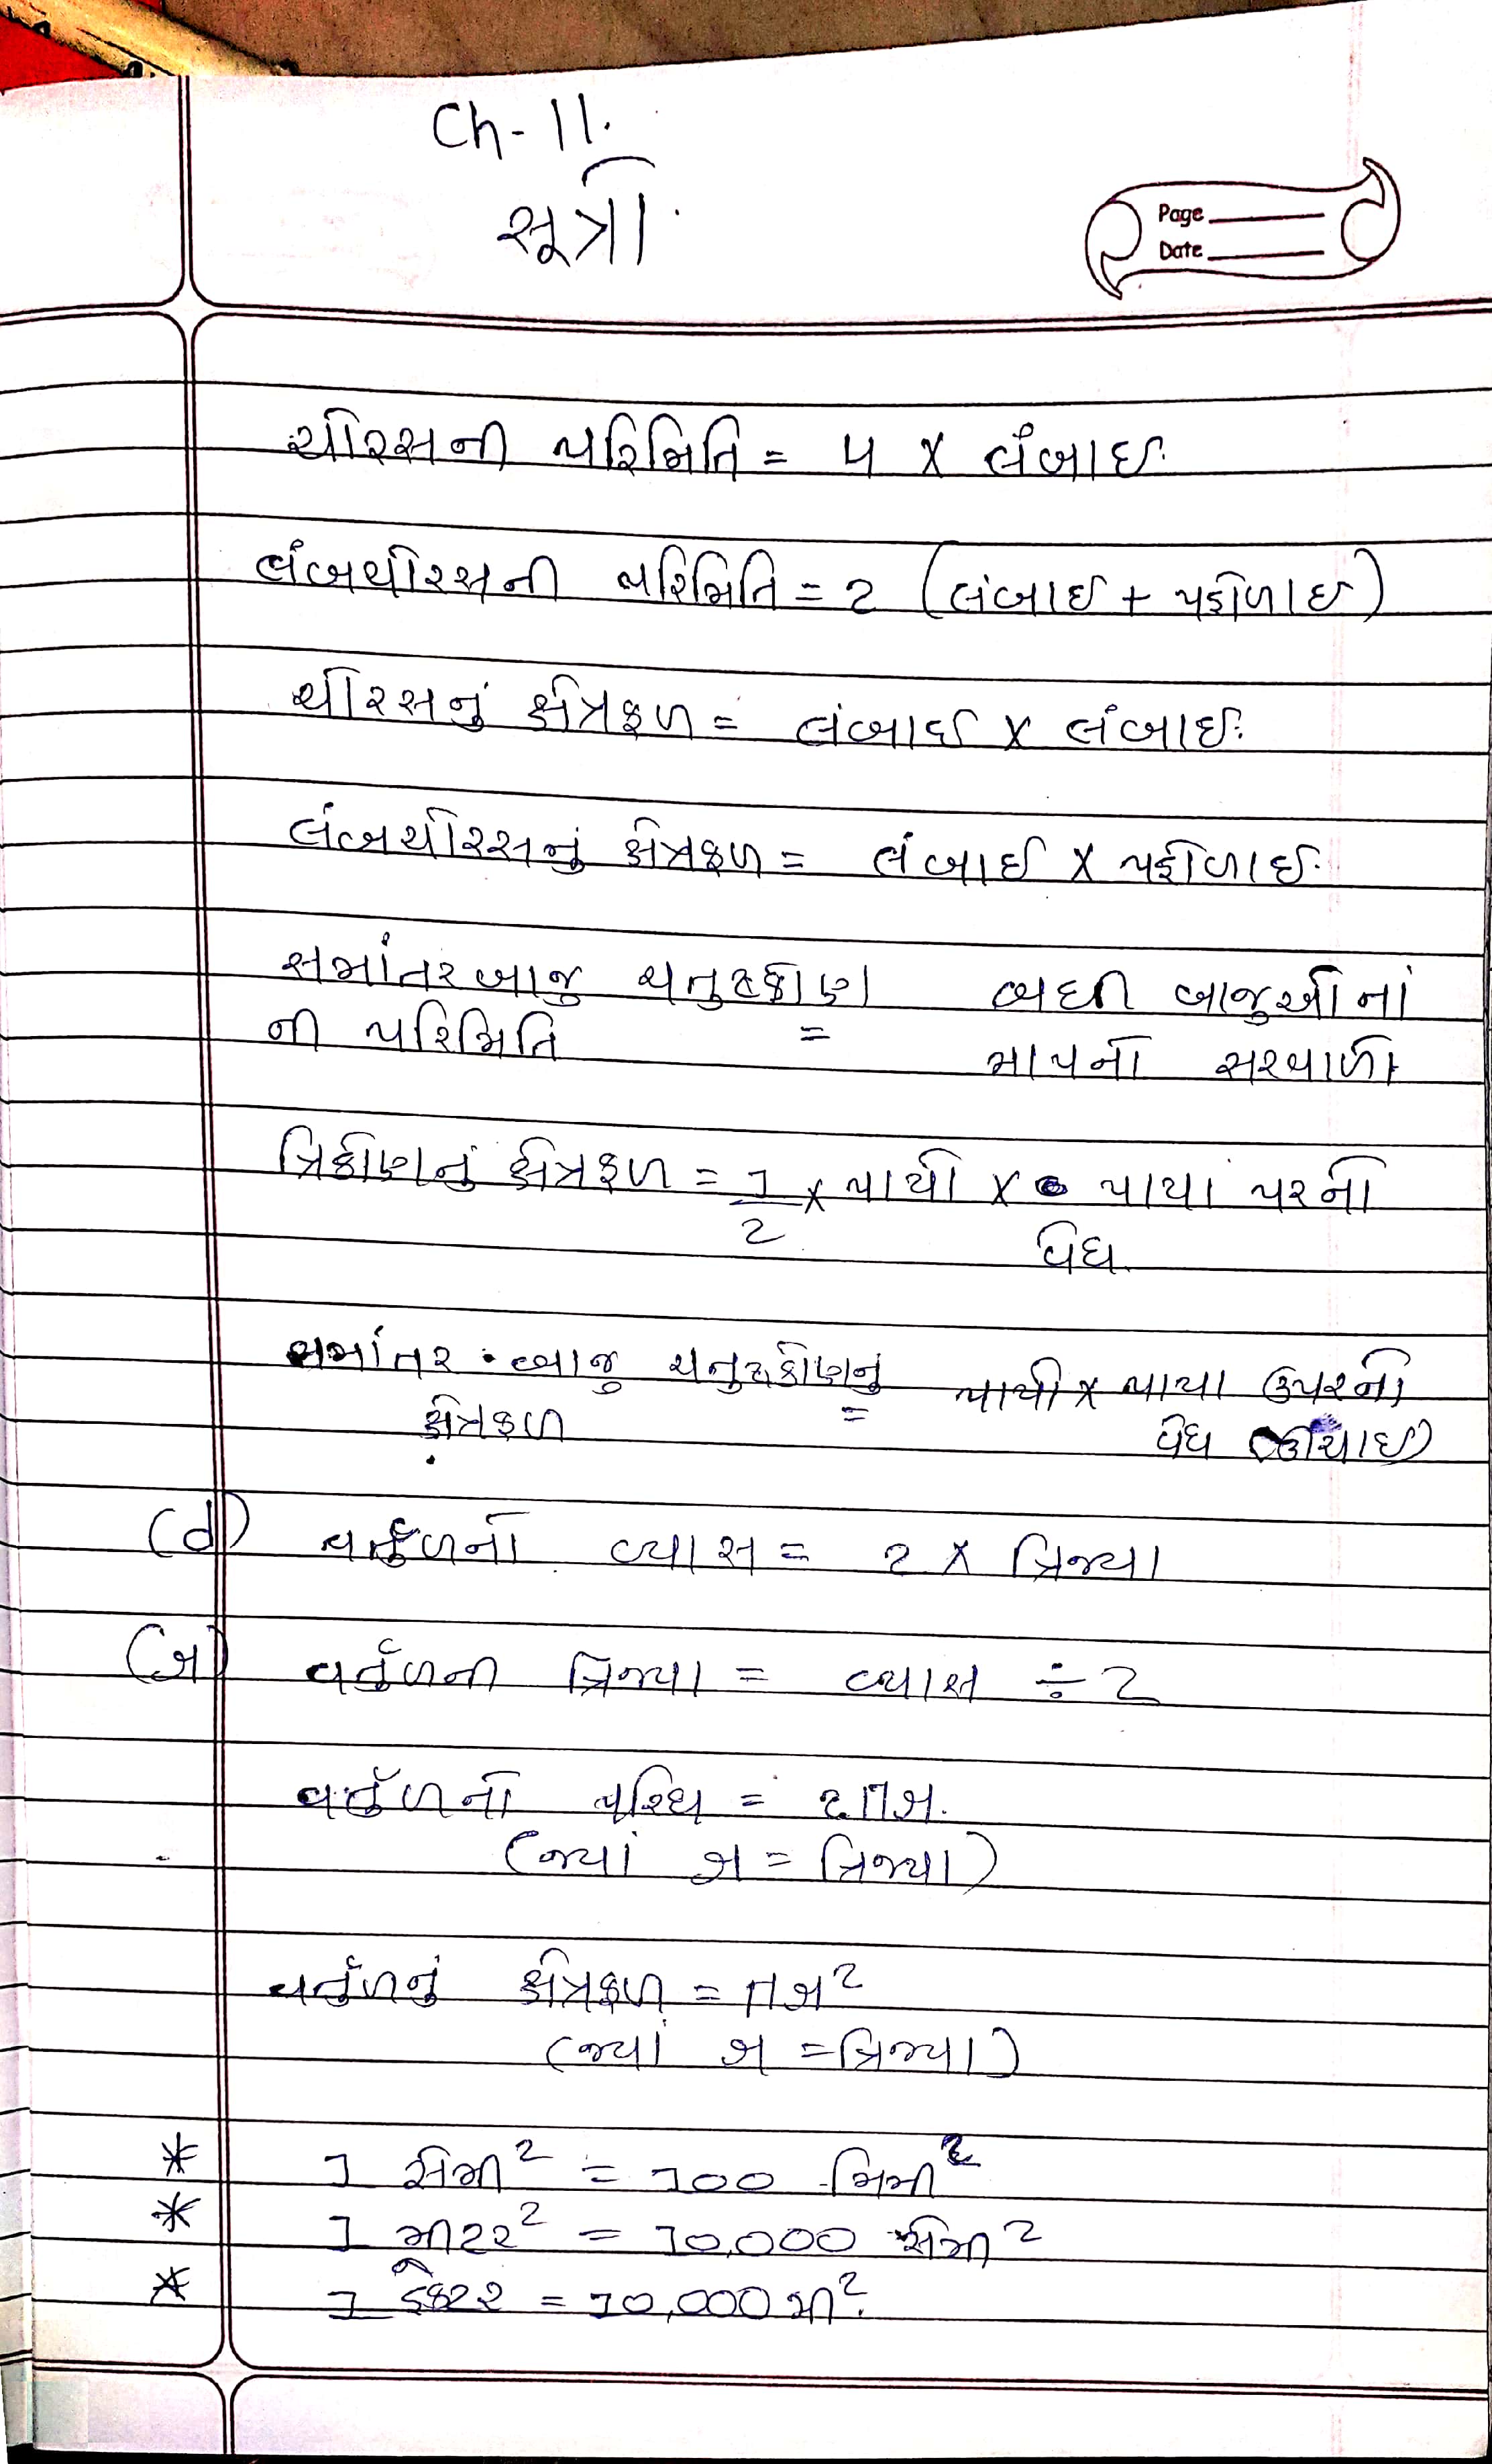 Ch-11.
સૂત્રો.
Page
Date
ચોરસની પરિમિતિ = 4 x લંબાઈ.
લંબચોરસની પરિમિતિ = 2 (લંબાઈ + પહોળાઈ)
ચોરસનું ક્ષેત્રફળ = લંબાઈ x લંબાઈ.
લંબચોરસનું ક્ષેત્રફળ = લંબાઈ x પહોળાઈ.
સમાંતર બાજુ ચતુષ્કોણ બધી બાજુઓનાં
ની પરિમિતિ = માપનો સરવાળો
ત્રિકોણનું ક્ષેત્રફળ = 1/2 x પાયો x પાયા પરનો
વેધ.
સમાંતર બાજુ ચતુષ્કોણનું પાયો x પાયા ઉપરનો
ક્ષેત્રફળ = વેધ (ઊંચાઈ)
(d) વર્તુળનો વ્યાસ = 2 x ત્રિજ્યા
(r) વર્તુળની ત્રિજ્યા = વ્યાસ ÷ 2
વર્તુળનો પરિઘ = 2πr.
(જ્યાં r = ત્રિજ્યા)
વર્તુળનું ક્ષેત્રફળ = πr²
(જ્યાં r = ત્રિજ્યા)
* 1 સેમી² = 100 મિમી²
* 1 મીટર² = 10,000 સેમી²
* 1 હેક્ટર = 10,000 મી².